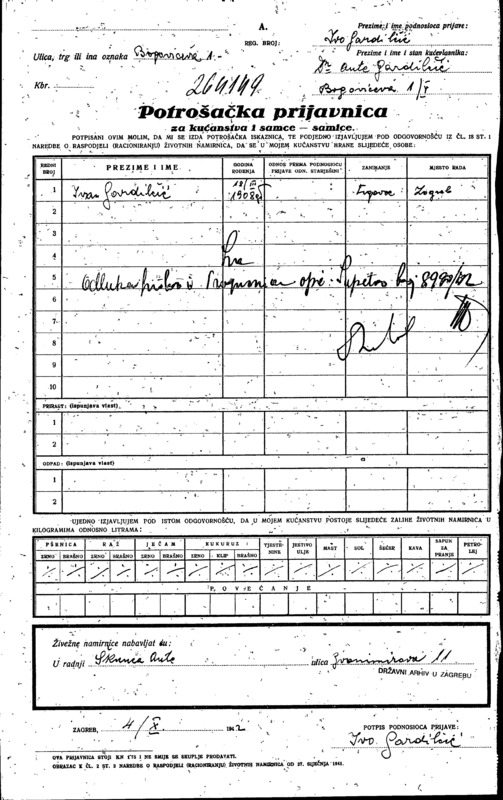 A.
REG. BROJ:
Prezime i ime podnosioca prijave:
Ivo Gardilčić
Ulica, trg ili ina oznaka Bogovićeva 1
Prezime i ime i stan kućevlasnika:
Dr Ante Gardilčić
Kbr.
264149
Bogovićeva 1/I
Potrošačka prijavnica
za kućanstva i samce — samice.
POTPISANI OVIM MOLIM, DA MI SE IZDA POTROŠAČKA ISKAZNICA, TE PODJEDNO IZJAVLJUJEM POD ODGOVORNOŠĆU IZ ČL. 18 ST. 1
NAREDBE O RASPODJELI (RACIONIRANJU) ŽIVOTNIH NAMIRNICA, DA SE U MOJEM KUĆANSTVU HRANE SLIJEDEĆE OSOBE:
REDNI BROJ PREZIME I IME GODINA RODENJA ODNOS PREMA PODNOSIOCU PRIJAVE ODN. STARJEŠINI ZANIMANJE MJESTO RADA
1 Ivan Gardilčić 1908 trgovac Zagreb
2
3
4
5 Odluka
6
7
8
9
10
PRIRAST: (ispunjava vlast)
1
2
OTPAD: (ispunjava vlast)
1
2
UJEDNO IZJAVLJUJEM POD ISTOM ODGOVORNOŠĆU, DA U MOJEM KUĆANSTVU POSTOJE SLIJEDEĆE ZALIHE ŽIVOTNIH NAMIRNICA U
KILOGRAMIMA ODNOSNO LITRAMA:
PŠENICA RAŽ JEČAM KUKURUZ TJESTENINE JESTIVO ULJE MAST SOL ŠEĆER KAVA SAPUN ZA PRANJE PETROLEJ
ZRNO BRAŠNO ZRNO BRAŠNO ZRNO BRAŠNO ZRNO KLIP BRAŠNO
POVEĆANJE
Živežne namirnice nabavljat ću:
U radnji Skunca Ante ulica Zvonimirova 11
DRŽAVNI ARHIV U ZAGREBU
ZAGREB, 4/X 1942
POTPIS PODNOSIOCA PRIJAVE:
Ivo Gardilčić
OVA PRIJAVNICA STOJI KN 1'75 I NE SMIJE SE SKUPLJE PRODAVATI.
OBRAZAC K ČL. 2 ST. 2 NAREDBE O RASPODJELI (RACIONIRANJU) ŽIVOTNIH NAMIRNICA OD 27. SIJEČNJA 1941.